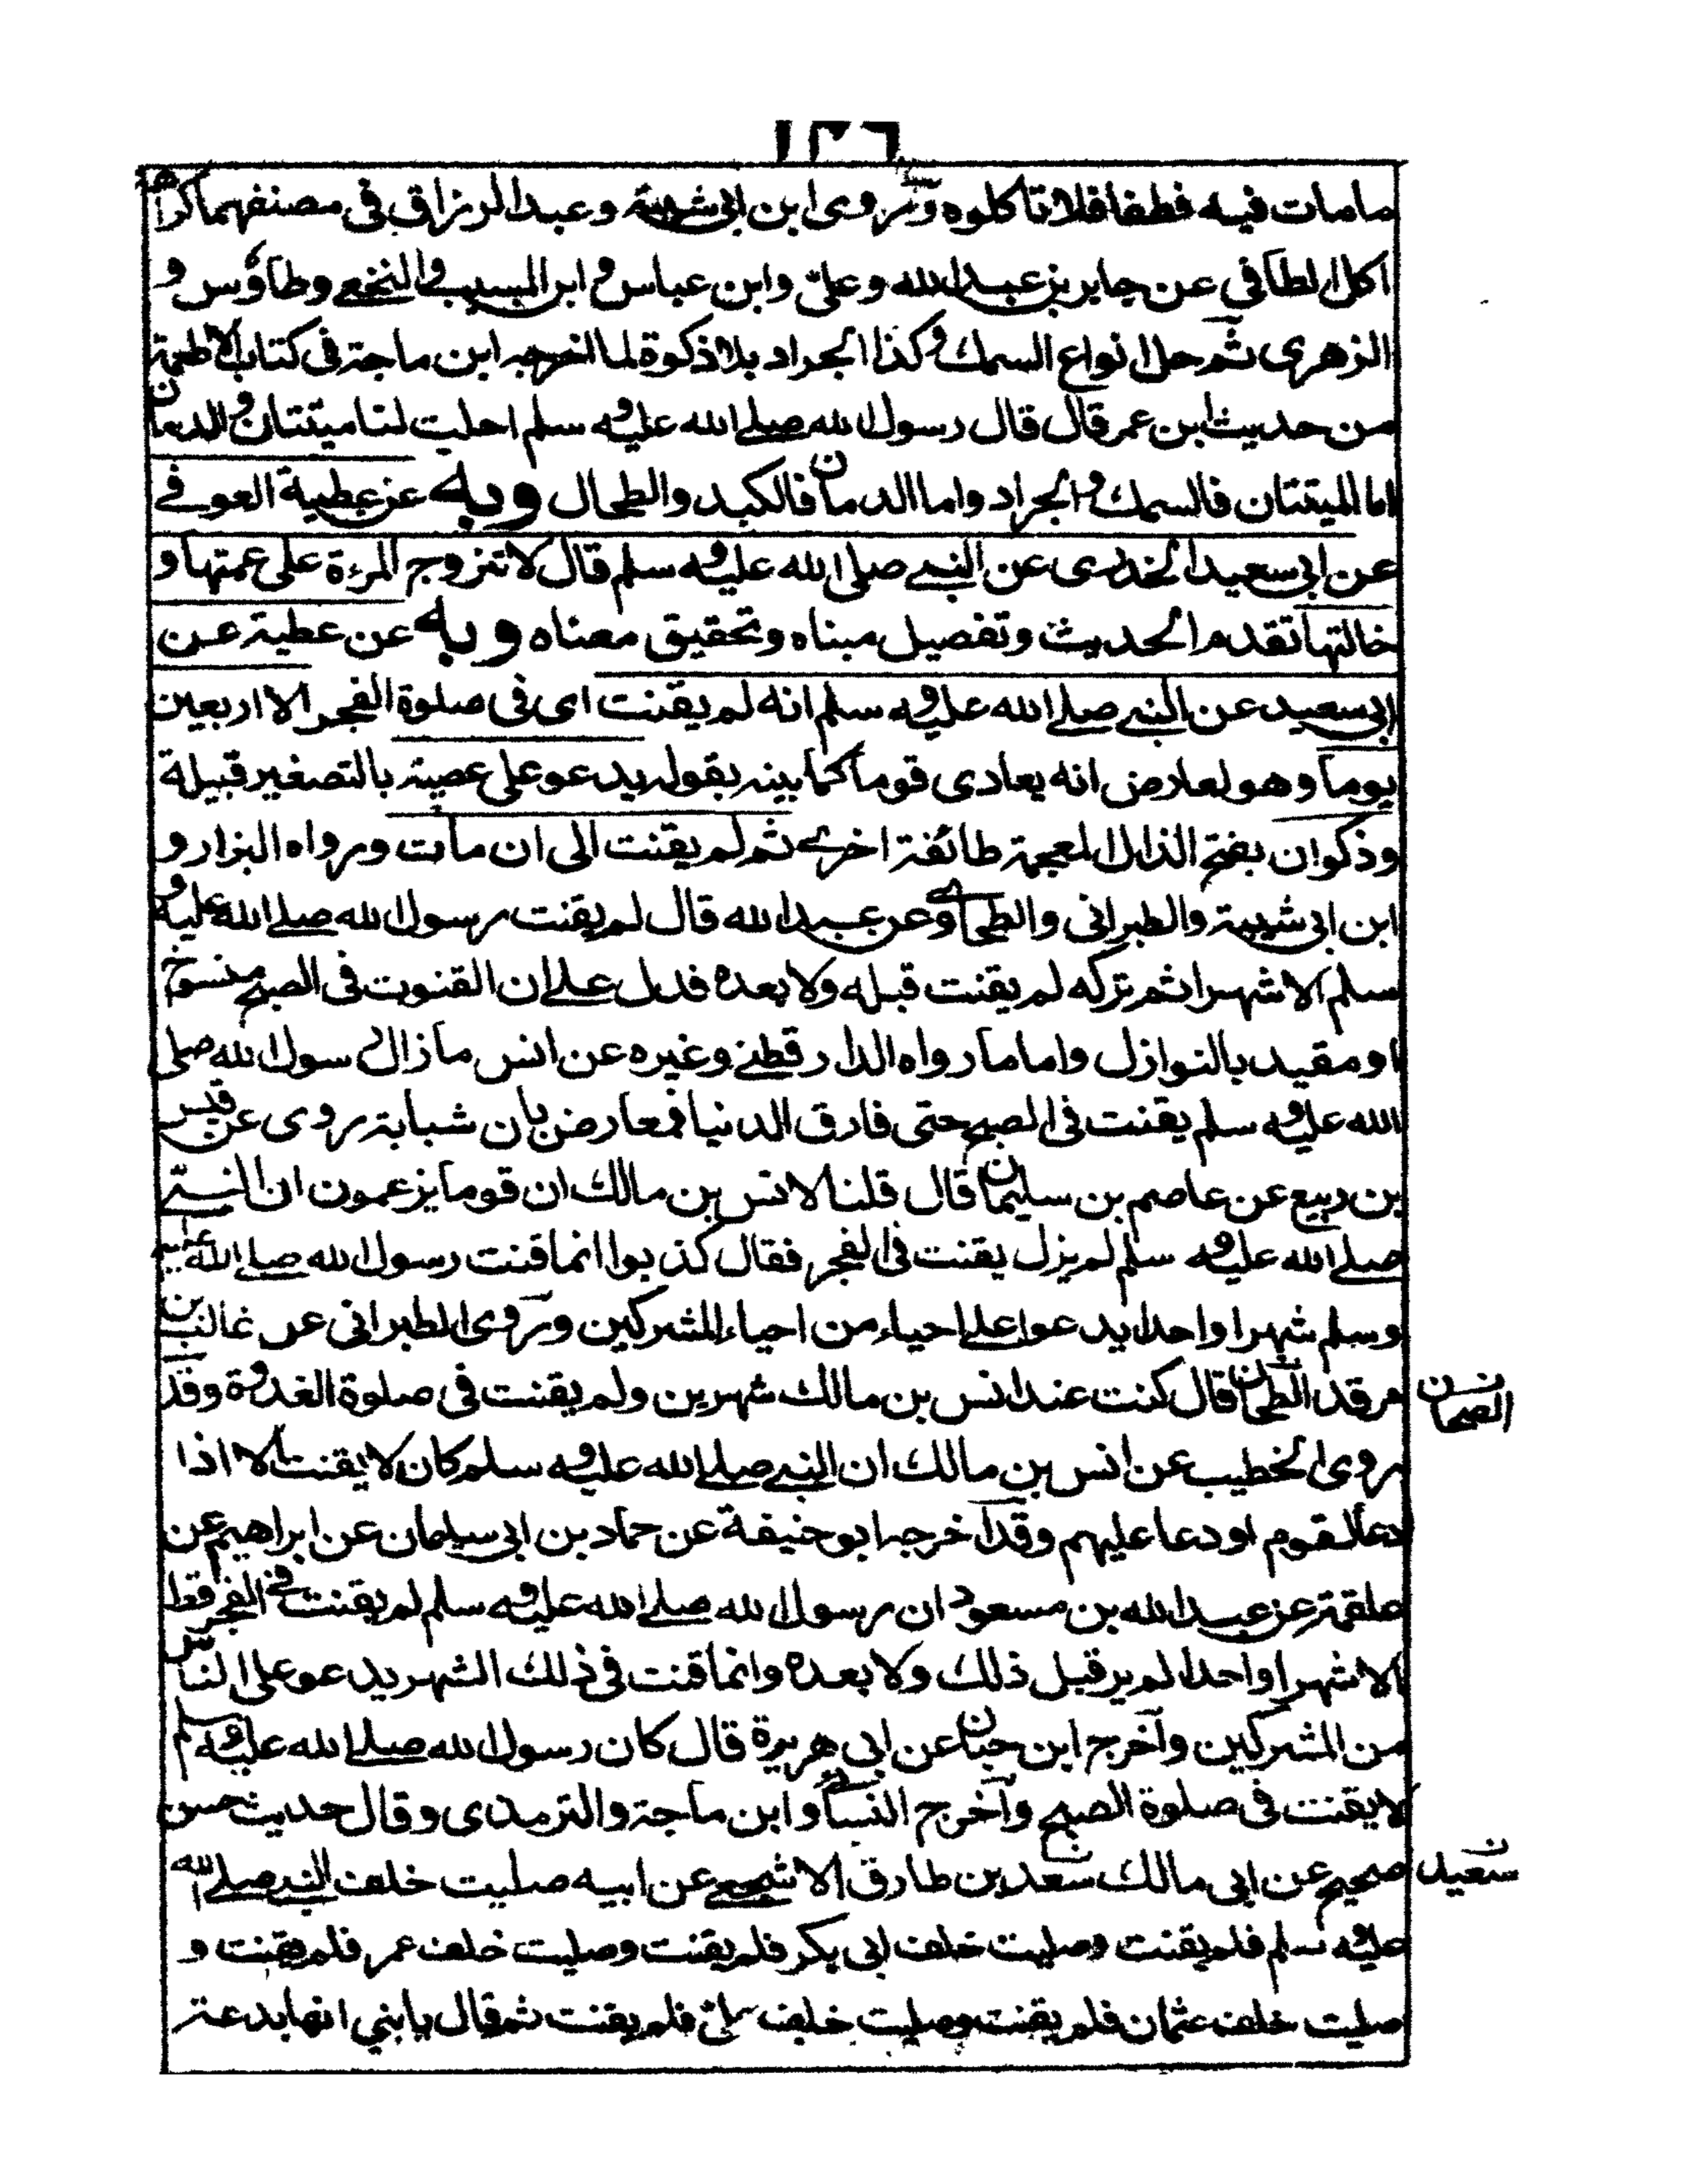 ١٣٦
مامات فيه فطفا فلا تاكلوه وروى ابن ابى شيبة وعبد الرزاق فى مصنفيهما كراهة
اكل الطافي عن جابر بن عبد الله وعلىّ وابن عباس و ابن المسيب والنخعي وطاؤس و
الزهرى ثم حل انواع السمك وكذا الجراد بلا ذكوة لما اخرجه ابن ماجة فى كتاب الاطعمة
من حديث ابن عمر قال قال رسول الله صلے الله عليه و سلم احلت لنا ميتتان و الدمان
اما الميتتان فالسمك و الجراد واما الدمان فالكبد والطحال وبه عن عطية العوفے
عن ابي سعيد الخدرى عن النبے صلى الله عليه و سلم قال لا تزوج المرءة على عمتها و
خالتها تقدم الحديث وتفصيل مبناه وتحقيق معناه وبه عن عطية عن
ابى سعيد عن النبے صلے الله عليه و سلم انه لم يقنت اى فى صلوة الفجر الا اربعين
يوما وهو لعارض انه يعادى قوما كما بينه بقوله يدعو على عصية بالتصغير قبيلة
وذكوان بفتح الذال المعجمة طائفة اخرے ثم لم يقنت الى ان مات ورواه البزار و
ابن ابى شيبة والطبرانى والطحاوے وعن عبد الله قال لم يقنت رسول الله صلے الله عليه و
سلم الا شهرا ثم تركه لم يقنت قبله ولا بعده فدل علے ان القنوت فى الصبح منسوخ
او مقيد بالنوازل واما ما رواه الدار قطنے وغيره عن انس ما زال رسول الله صلى
الله عليه و سلم يقنت فى الصبح حتى فارق الدنيا فمعارض بان شبابة روى عن قيس
بن ربيع عن عاصم بن سليمان قال قلنا لانس بن مالك ان قوما يزعمون ان النبےّ
صلے الله عليه و سلم لم يزل يقنت فى الفجر فقال كذبوا انما قنت رسول الله صلے الله عليه
وسلم شهرا واحدا يدعوا علے احياء من احياء المشركين وروى الطبرانى عن غالب بن
فرقد الطحان قال كنت عند انس بن مالك شهرين ولم يقنت فى صلوة الغدوة وقد
الصحان ن
روى الخطيب عن انس بن مالك ان النبے صلے الله عليه و سلم كان لا يقنت الا اذا
دعا لقوم او دعا عليهم وقد اخرجه ابو حنيفة عن حماد بن ابى سليمان عن ابراهيم عن
علقمة عن عبد الله بن مسعود ان رسول الله صلے الله عليه و سلم لم يقنت فے الفجر قط
الا شهرا واحدا لم ير قبل ذلك ولا بعده وانما قنت فى ذلك الشهر يدعو على الناس
من المشركين وآخرج ابن حبان عن ابى هريرة قال كان رسول الله صلے الله عليه و سلم
لا يقنت فى صلوة الصبح وآخرج النسائى و ابن ماجة والترمذى وقال حديث حسن
صحيح عن ابى مالك سعد بن طارق الاشجعے عن ابيه صليت خلف النبے صلے الله
سعيد ن
عليه و سلم فلم يقنت وصليت خلف ابى بكر فلم يقنت وصليت خلف عمر فلم يقنت و
صليت خلف عثمان فلم يقنت وصليت خلف علىّ فلم يقنت ثم قال يا بني انها بدعة